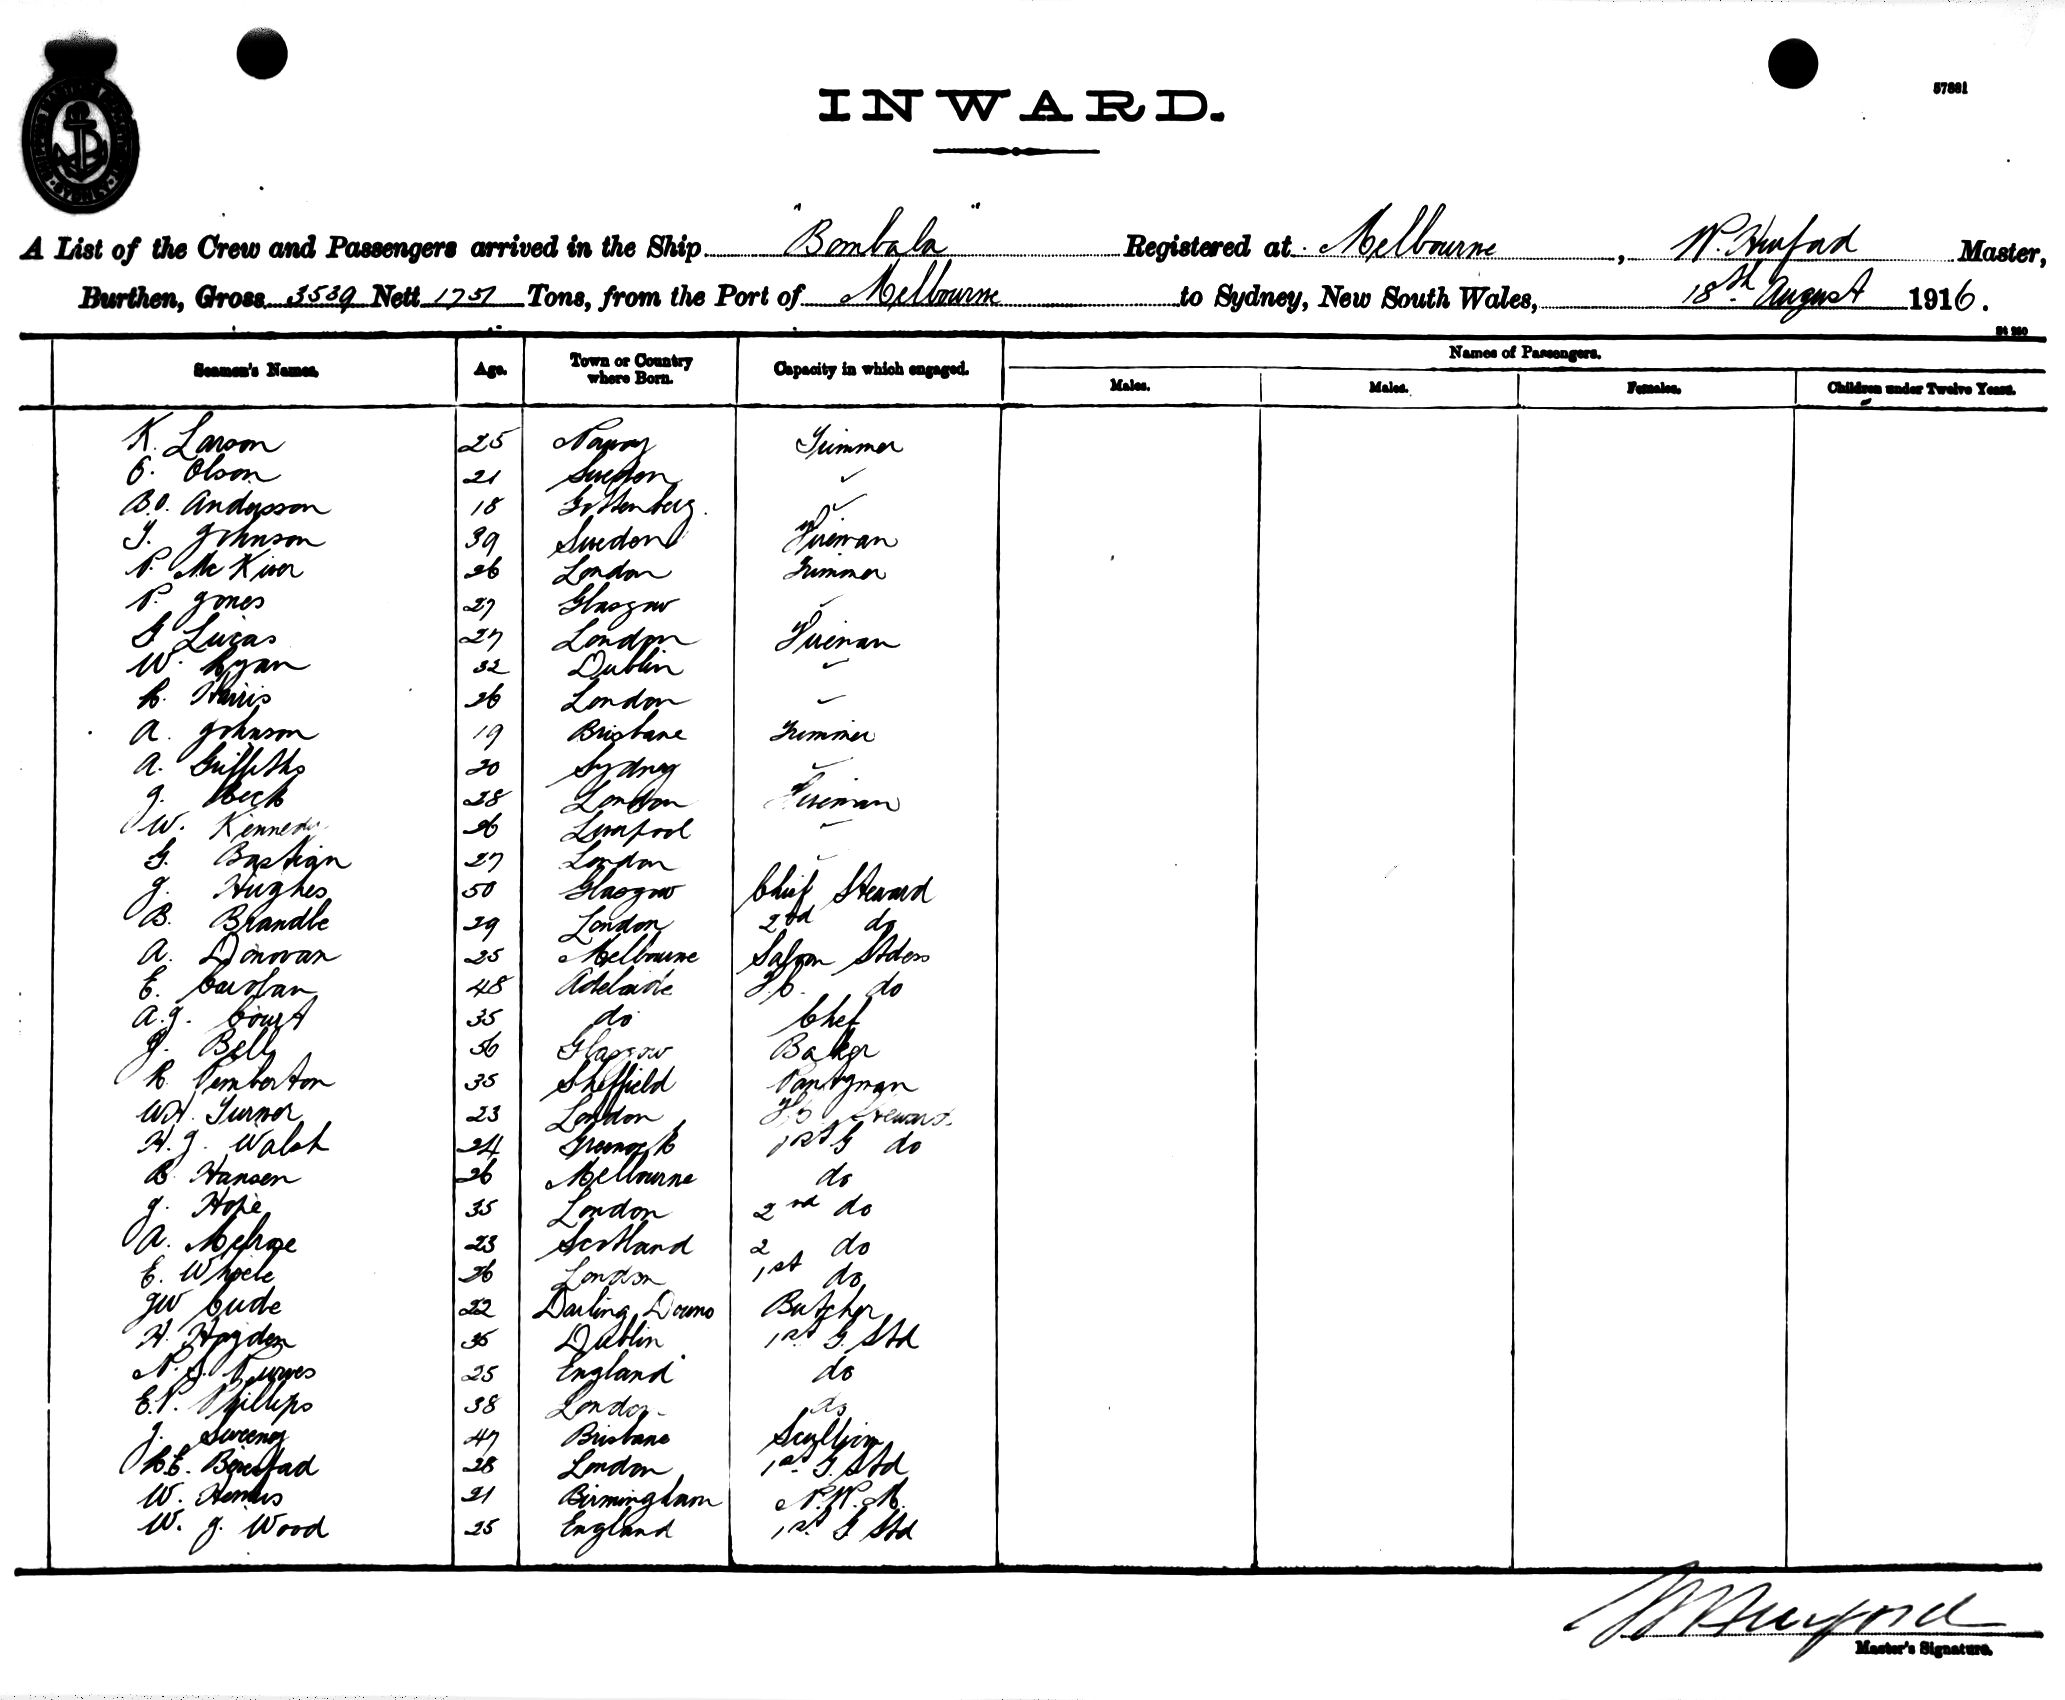 57881
INWARD.
A List of the Crew and Passengers arrived in the Ship "Bombala" Registered at Melbourne, W. Hurford Master,
Burthen, Gross 3539 Nett 1751 Tons, from the Port of Melbourne to Sydney, New South Wales, 18th August 1916.
Seamen's Names. Age. Town or Country where Born. Capacity in which engaged. Names of Passengers.
Males. Males. Females. Children under Twelve Years.
K. Larson 25 Norway Trimmer
O. Olson 21 Sweden
B.O. Andersson 18 Gottenberg.
J. Johnson 39 Sweden Fireman
P. McKiver 26 London Trimmer
P. Jones 27 Glasgow
G Lucas 27 London Fireman
W. Ryan 32 Dublin
R. Harris 26 London
A. Johnson 19 Brisbane Trimmer
A. Griffiths 20 Sydney
J. Beck 28 London Fireman
W. Kennedy 26 Liverpool
G. Bastian 27 London
J. Hughes 50 Glasgow Chief Steward
B. Brandle 29 London 2nd do
A. Donovan 25 Melbourne Saloon Stdess
E. Carolan 48 Adelaide do
A.J. Court 35 do Chef
J. Bell 56 Glasgow Baker
R. Pemberton 35 Sheffield Pantryman
W.H. Turner 23 London Steward
H. J. Walsh 24 Greenock 1st G do
B. Hansen 26 Melbourne do
J. Hope 35 London 2nd do
A. Melrose 23 Scotland 2 do
E. Wheele 26 London 1st do
JW Cude 22 Darling Downs Butcher
H. Hayden 35 Dublin 1st G. Std
N. S. Purves 25 England do
E.P. Phillips 38 London do
J. Sweeney 47 Brisbane Scullion
R.E. Beresford 28 London 1st G. Std
W. 21 Birmingham N.W.M.
W. J. Wood 25 England 1st G Std
W Hurford
Master's Signature.